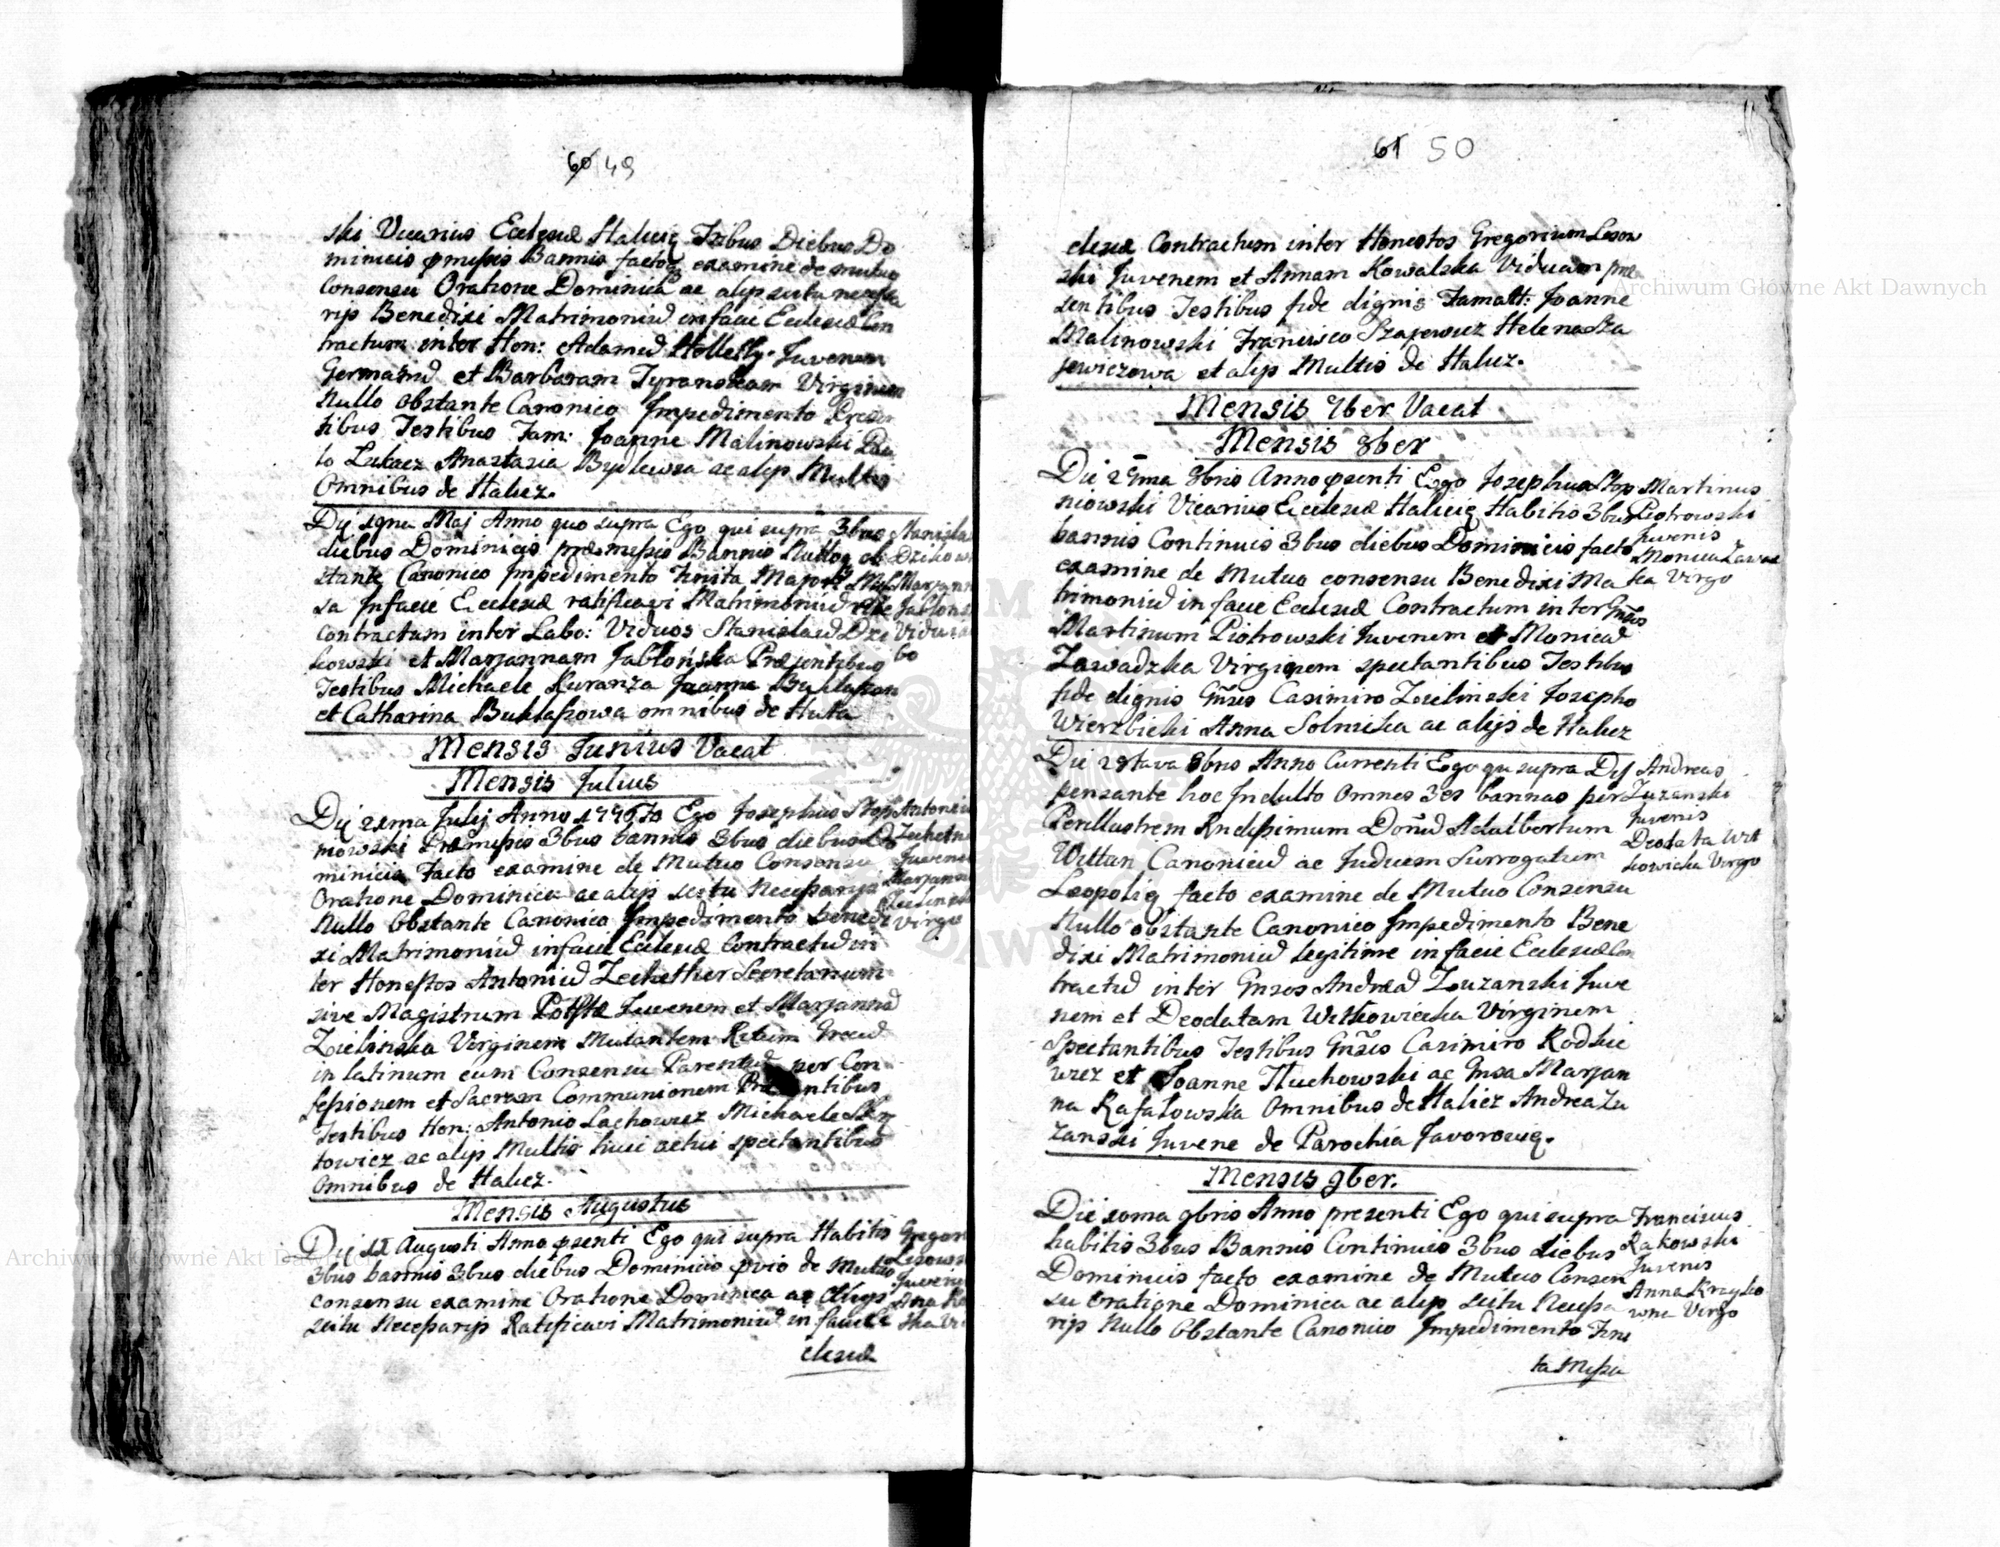 60 49
ski Vicarius Ecclesiæ Halicię Tribus Diebus Do
minicis pmissis Bannis facto examine de mutuo
Consensu Oratione Dominica ac alijs scitu necessa
rijs Benedixi Matrimoniũ in facie Ecclesiæ Con
tractum inter Hon: Adamũ Juvenem
Germanũ et Barbaram Tyranskam Virginem
Nullo Obstante Canonico Impedimento Presen
tibus Testibus Fam: Joanne Malinowski Pau
lo Lukacz Anastasia ac alijs Multis
Omnibus de Halicz.
Dij 19na Maj Anno quo supra Ego qui supra 3bus
diebus Dominicis præmissis Bannis Nulloq ob
stante Canonico Impedimento Finita Majori Mis
sa Infacie Ecclesiæ ratificavi Matrimoniũ rite
contractum inter Labo: Viduos Stanislaũ Dzi
kowski et Marjannam Jabłońska Præsentibus
Testibus Michaele Kuranza Joanne
et Catharina omnibus de Huta
Stanislaus
Dzikows
Marjann
Jablons
Vidui
bo
Mensis Junius Vacat
Mensis Julius
Dij 21ma Julij Anno 1796to Ego Josephus Stop
nowski Præmissis 3bus bannis 3bus diebus Do
minicis Facto examine de Mutuo Consensu
Oratione Dominica ac alijs scitu Necessarijs
Nullo Obstante Canonico Impedimento benedi
xi Matrimoniũ infacie Ecclesiæ Contractũ in
ter Honestos Antoniũ Zechetner Secretarium
sive Magistrum Postæ Juvenem et Marjannã
Zielinska Virginem Mutantem Ritum Græcũ
in latinum cum Consensu Parentũ per Con
fessionem et Sacram Communionem Præsentibus
Testibus Hon: Antonio Lachowicz Michaele
towicz ac alijs Multis huic actui spectantibus
Omnibus de Halicz.
Antonius
Zechetne
Juvenis
Marjanna
Zielinsk
Virgo
Mensis Augustus
Dij 11 Augusti Anno psenti Ego qui supra Habitis
3bus bannis 3bus diebus Dominicis pvio de Mutuo
consensu examine Oratione Dominica ac Alijs
scitu Necessarijs Ratificavi Matrimoniũ in facie Ec
clesiæ
Gregori
Lesows
Juvenis
Ana Ko
ska Vi
61 50
clesiæ Contractum inter Honestos Gregorium Lesow
ski Juvenem et Annam Kowalska Viduam præ
sentibus Testibus fide dignis Famatt: Joanne
Malinowski Francisco Szajewicz Helena Sza
jewiczowa et alijs Multis de Halicz.
Mensis 7ber Vacat
Mensis 8ber
Die 29ma 8bris Anno psenti Ego Josephus Stop
niowski Vicarius Ecclesiæ Halicię Habitis 3bus
bannis Continuis 3bus diebus Dominicis facto
examine de Mutuo consensu Benedixi Ma
trimoniũ in facie Ecclesiæ Contractum inter Gñsos
Martinum Piotrowski Juvenem et Monicã
Zawadzka Virginem spectantibus Testibus
fide dignis Gñsis Casimiro Zielinski Josepho
Wierzbicki Anna Solnicka ac alijs de Halicz
Martinus
Piotrowski
Juvenis
Monica Zawadz
ka Virgo
Die 28tava 8bris Anno Currenti Ego qui supra Dis
pensante hoc Indulto Omnes 3es bannas per
Perillustrem Rndissimum Doñũ Adalbertum
Wittan Canonicũ ac Judicem Surrogatum
Leopolię facto examine de Mutuo Consensu
Nullo obstante Canonico Impedimento Bene
dixi Matrimoniũ legitime in facie Ecclesiæ Con
tractũ inter Gnsos Andreã Zuzanski Juve
nem et Deodatam Witkowicka Virginem
Spectantibus Testibus Gñsis Casimiro Rodkie
wicz et Joanne Tluchowski ac Gnsa Marjan
na Rafałowska Omnibus de Halicz Andrea Zu
zanski Juvene de Parochia Javorowię.
Andreas
Zuzanski
Juvenis
Deodata Wit
kowicka Virgo
Mensis 9ber.
Die 10ma 9bris Anno presenti Ego qui supra
habitis 3bus Bannis Continuis 3bus diebus
Dominicis facto examine de Mutuo Consen
su Oratione Dominica ac alijs scitu Necessa
rijs Nullo Obstante Canonico Impedimento Fini
ta Missa
Franciscus
Rakowski
Juvenis
Anna Krzysko
wna Virgo
Archiwum Główne Akt Dawnych
Archiwum Główne Akt Dawnych